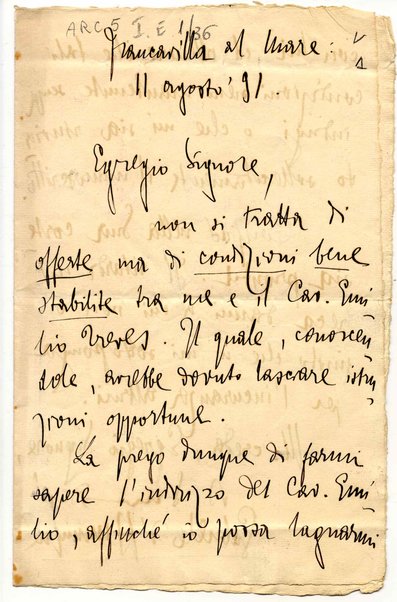 ARC 5 I.E 1/36
Francavilla al Mare:
11 agosto '91.
Egregio Signore,
non si tratta di
offerte ma di condizioni bene
stabilite tra me e il Cav. Emi
lio Treves. Il quale, conoscen
dole, avrebbe dovuto lasciare istru
zioni opportune.
La prego dunque di farmi
sapere l'indirizzo del Cav. Emi
lio, affinché io possa lagnarmi